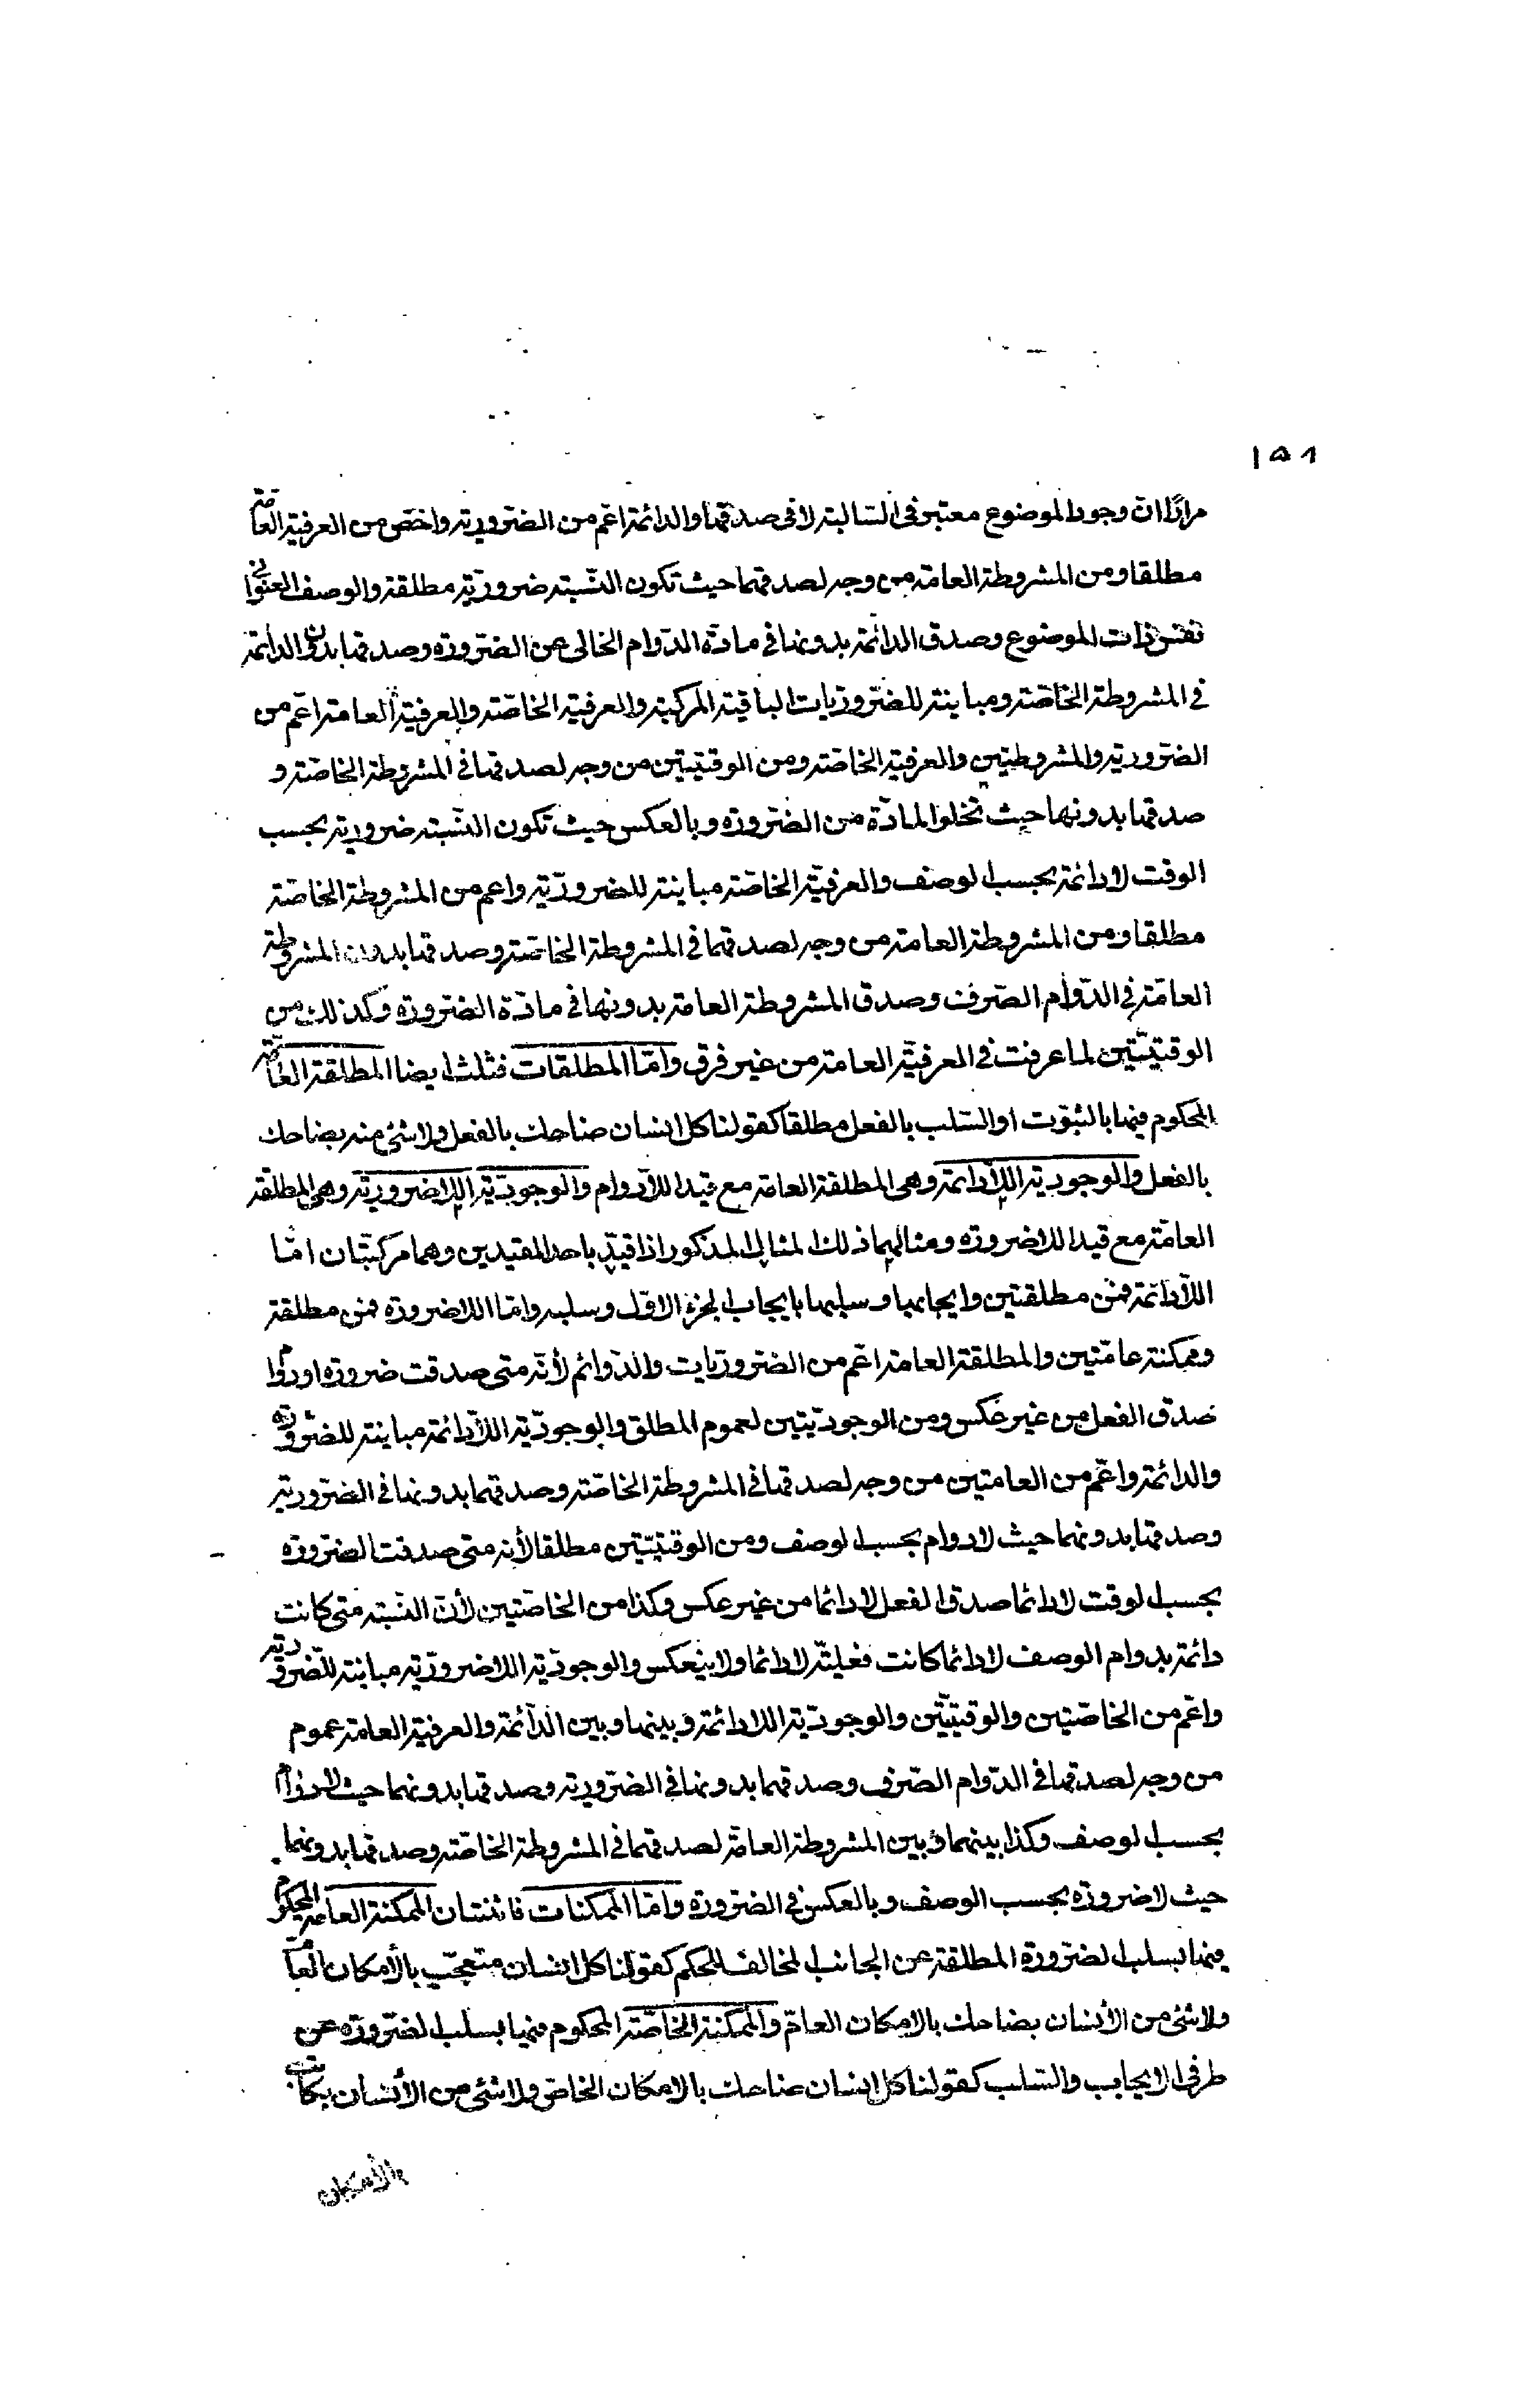 ١٥٨
مرارًا ان وجود الموضوع معتبر فى السّالبة لا فى صدقها والدائمة اعّم من الضّروريّة واخصّ من العرفيّة العامّة
مطلقا ومن المشروطة العامّة من وجه لصدقهما حيث تكون النّسبة ضروريّة مطلقة والوصف العنوانى
نفس ذات الموضوع وصدق الدائمة بدونها فى مادّة الدّوام الخالى عن الضّرورة وصدقها بدون الدائمة
فى المشروطة الخاصّة ومباينة للضّروريّات الباقية المركبة والعرفيّة الخاصّة والعرفيّة العامة اعّم من
الضّروريّة والمشروطتين والعرفيّة الخاصّة ومن الوقتيّتين من وجه لصدقها فى المشروطة الخاصّة و
صدقها بدونها حيث تخلو المادّة من الضّرورة وبالعكس حيث تكون النّسبة ضروريّة بحسب
الوقت لا دائمة بحسب الوصف والعرفيّة الخاصّة مباينة للضروريّة واعم من المشروطة الخاصّة
مطلقا ومن المشروطة العامة من وجه لصدقهما فى المشروطة الخاصّة وصدقها بدون المشروطة
العامّة فى الدّوام الصّرف وصدق المشروطة العامة بدونها فى مادّة الضّرورة وكذلك من
الوقتيّتين لما عرفت فى العرفيّة العامة من غير فرق وامّا المطلقات فثلث ايضا المطلقة العامّة
المحكوم فيها بالثبوت او السّلب بالفعل مطلقا كقولنا كل انسان ضاحك بالفعل ولا شئ منه بضاحك
بالفعل والوجوديّة اللاّدائمة وهى المطلقة العامة مع قيد اللاّدوام والوجوديّة اللاّضروريّة وهى المطلقة
العامّة مع قيد اللاضرورة ومثالهما ذلك المثال المذكور اذا قيّد باحد القيدين وهما مركبّتان امّا
اللاّدائمة فمن مطلقتين وايجابها وسلبها بايجاب الجزء الاوّل وسلبه وامّا اللاضرورة فمن مطلقة
وممكنة عامّتين والمطلقة العامة اعّم من الضّروريّات والدّوائم لأنّه متى صدقت ضرورة او دوام
صدق الفعل من غير عكس ومن الوجوديّتين لعموم المطلق والوجوديّة اللاّدائمة مباينة للضّروريّة
والدائمة واعّم من العامتين من وجه لصدقها فى المشروطة الخاصّة وصدقهما بدونها فى الضّروريّة
وصدقها بدونهما حيث لا دوام بحسب الوصف ومن الوقتيّتين مطلقا لأنه متى صدقت الضّرورة
بحسب الوقت لا دائما صدق الفعل لا دائما من غير عكس وكذا من الخاصّتين لأنّ النّسبة متى كانت
دائمة بدوام الوصف لا دائما كانت فعليّة لا دائما ولا ينعكس والوجوديّة اللاضروريّة مباينة للضّروريّة
واعّم من الخاصّتين والوقتيّتين والوجوديّة اللادائمة وبينها وبين الدّائمة والعرفيّة العامة عموم
من وجه لصدقها فى الدّوام الصّرف وصدقهما بدونها فى الضّروريّة وصدقها بدونهما حيث لا دوام
بحسب الوصف وكذا بينها وبين المشروطة العامّة لصدقهما فى المشروطة الخاصّة وصدقها بدونها
حيث لا ضرورة بحسب الوصف وبالعكس فى الضّرورة وامّا الممكنات فاثنتان الممكنة العامّة المحكوم
فيها بسلب الضّرورة المطلقة عن الجانب المخالف للحكم كقولنا كل انسان متعجّب بالأمكان العامّ
ولا شئ من الأنسان بضاحك بالامكان العامّ والممكنة الخاصّة المحكوم فيها بسلب الضّرورة عن
طرفى الايجاب والسّلب كقولنا كل انسان ضاحك بالامكان الخاصّ ولا شئ من الأنسان بكاتب
بالأمكان